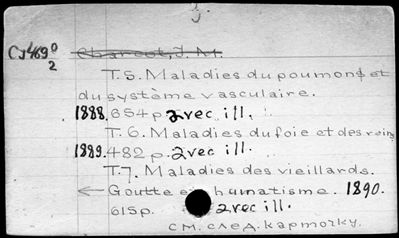 Cj 469 0/2
Charcot, J. M.
T. 5. Maladies du poumons et
du système vasculaire.
1888. 654 p. avec ill.
T. 6. Maladies du foie et des reins
1889. 482 p. avec ill.
T. 7. Maladies des vieillards.
← Goutte et rhumatisme. 1890.
615 p. avec ill.
см. след. карточку.